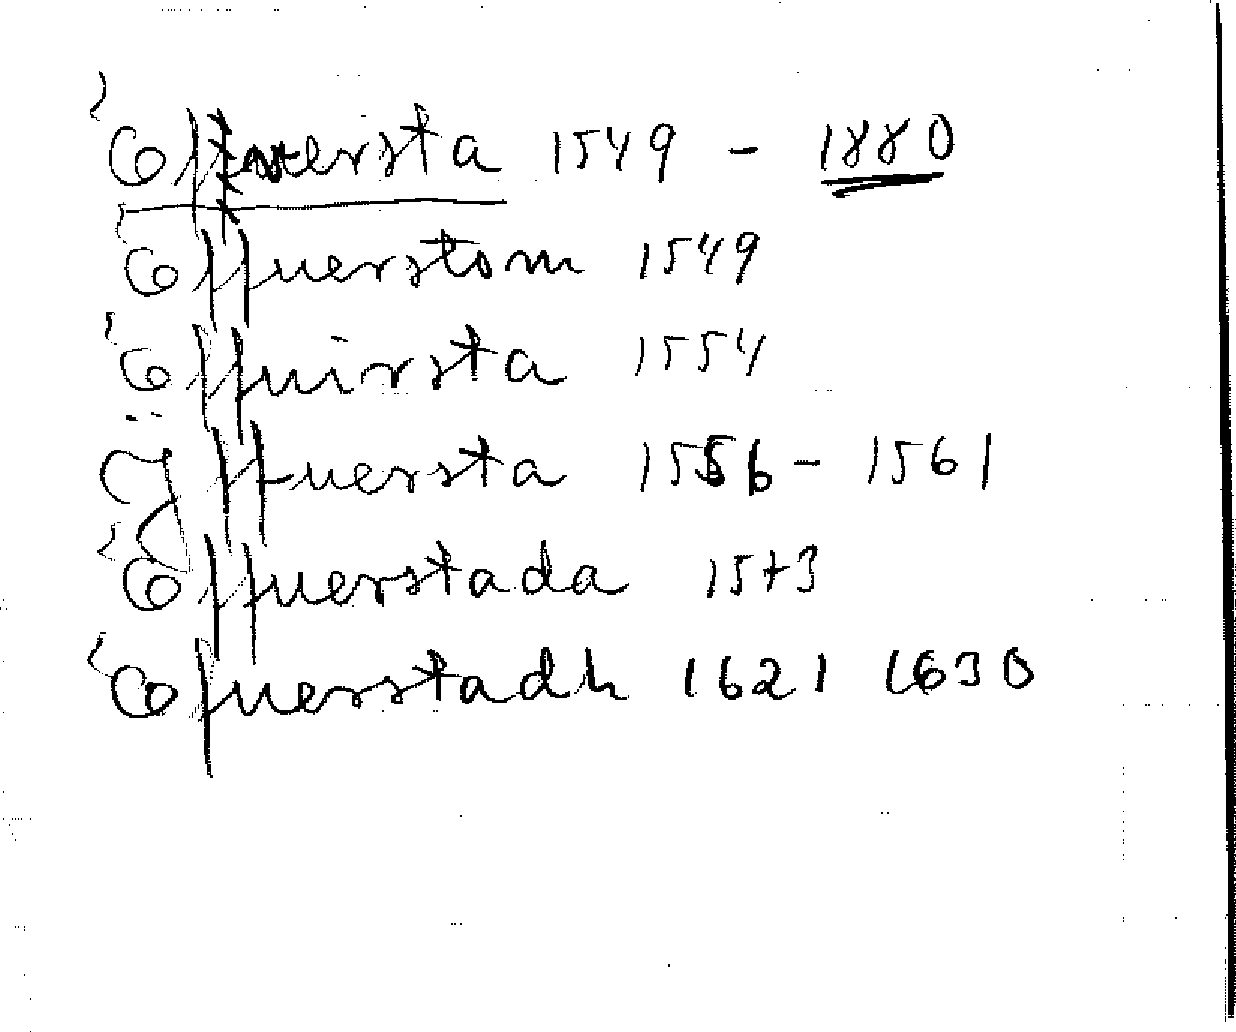 Öfversta 1549 - 1880
Öffuerstom 1549
Öffuirsta 1554
Ÿffuersta 1556 - 1561
Öffuerstada 1573
Öfuerstadh 1621 1630